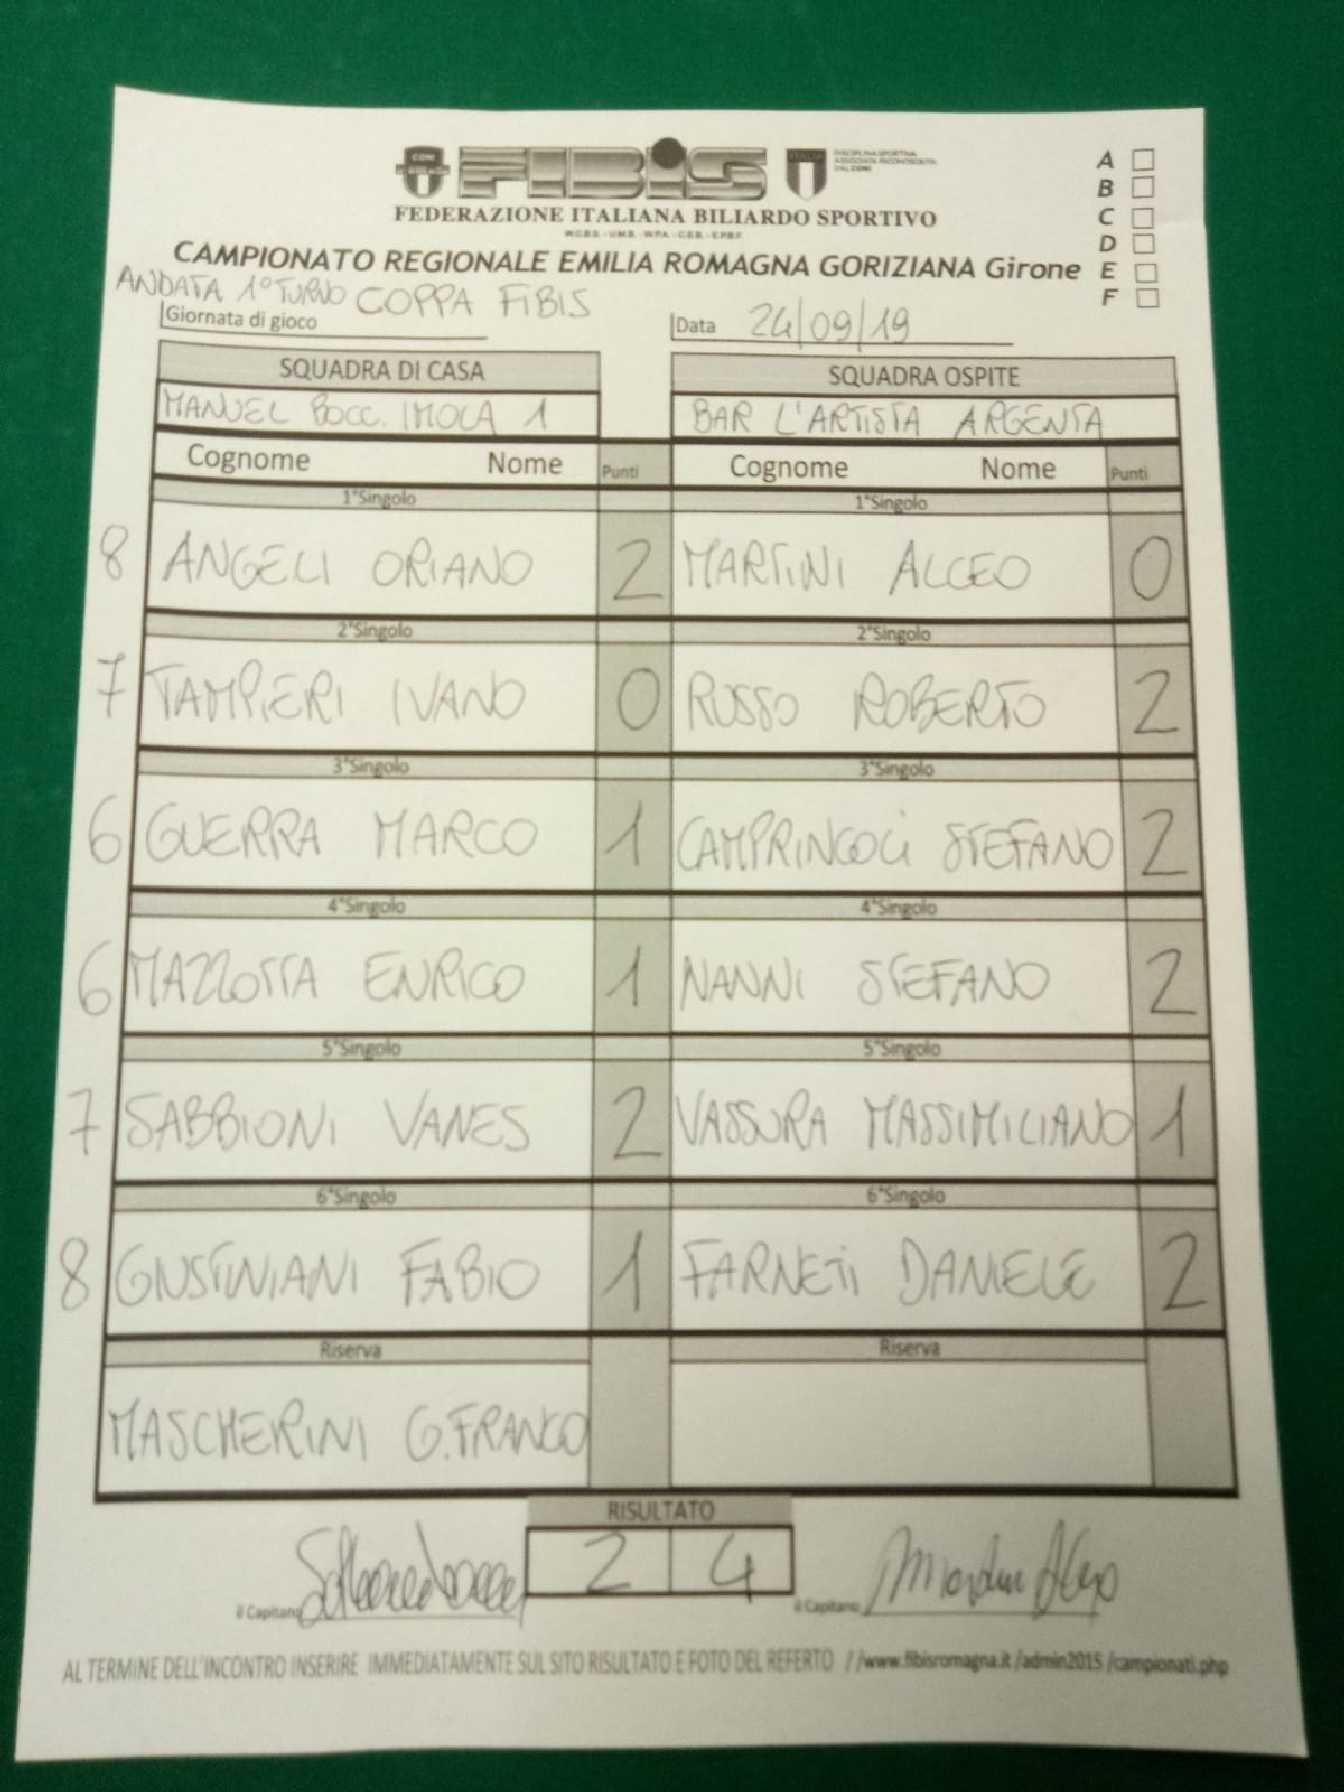 FIBiS
FEDERAZIONE ITALIANA BILIARDO SPORTIVO
W.C.B.S. - U.M.B. - W.P.A. - C.E.B. - E.P.B.F.
CAMPIONATO REGIONALE EMILIA ROMAGNA GORIZIANA Girone
A
B
C
D
E
F
ANDATA 1° TURNO COPPA FIBIS
Giornata di gioco
Data 24/09/19
SQUADRA DI CASA SQUADRA OSPITE
MANUEL BOCC. IMOLA 1 BAR L'ARTISTA ARGENTA
Cognome Nome Punti Cognome Nome Punti
1°Singolo 1°Singolo
8 ANGELI ORIANO 2 MARTINI ALCEO 0
2°Singolo 2°Singolo
7 TAMPIERI IVANO 0 RUSSO ROBERTO 2
3°Singolo 3°Singolo
6 GUERRA MARCO 1 CAMPRINCOLI STEFANO 2
4°Singolo 4°Singolo
6 MAZZOTTA ENRICO 1 NANNI STEFANO 2
5°Singolo 5°Singolo
7 SABBIONI VANES 2 VASSURA MASSIMILIANO 1
6°Singolo 6°Singolo
8 GIUSTINIANI FABIO 1 FARNETI DANIELE 2
Riserva Riserva
MASCHERINI G.FRANCO
RISULTATO
2 4
il Capitano il Capitano
AL TERMINE DELL'INCONTRO INSERIRE IMMEDIATAMENTE SUL SITO RISULTATO E FOTO DEL REFERTO //www.fibisromagna.it/admin2015/campionati.php